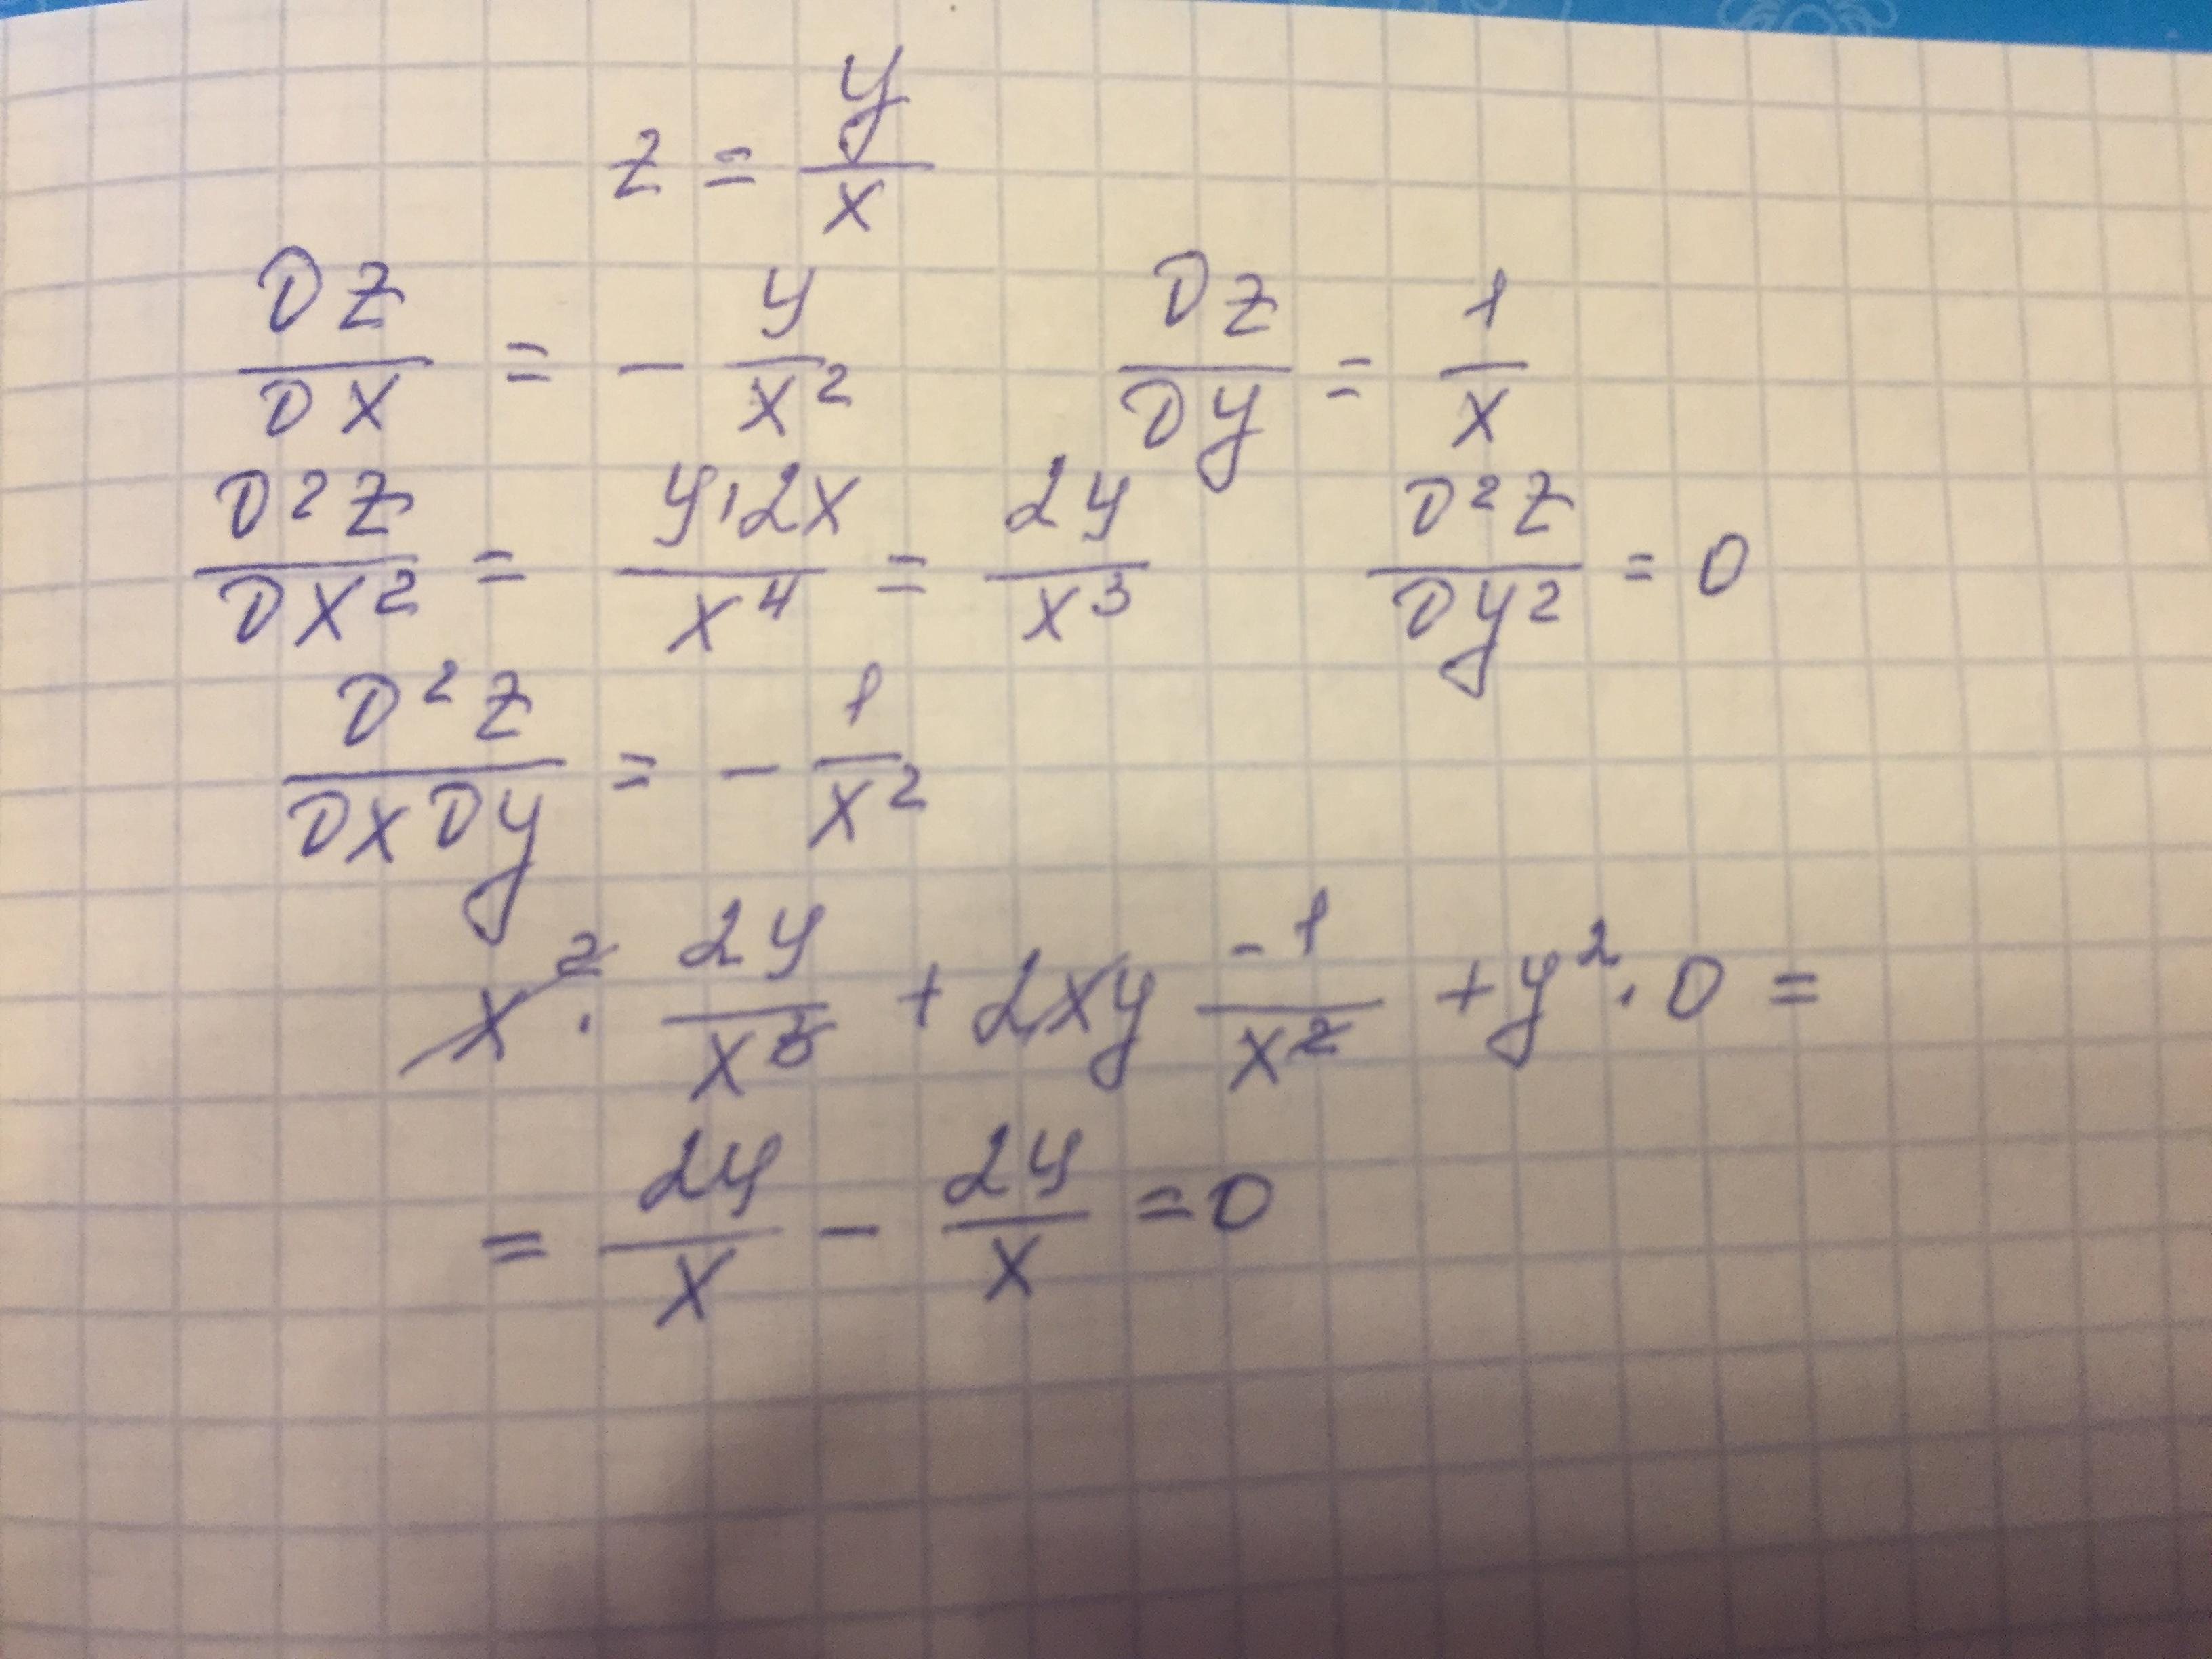 z = y/x
Dz/Dx = - y/x² Dz/Dy = 1/x
D²z/Dx² = y·2x/x⁴ = 2y/x³ D²z/Dy² = 0
D²z/DxDy = - 1/x²
x² · 2y/x³ + 2xy -1/x² + y² · 0 =
= 2y/x - 2y/x = 0